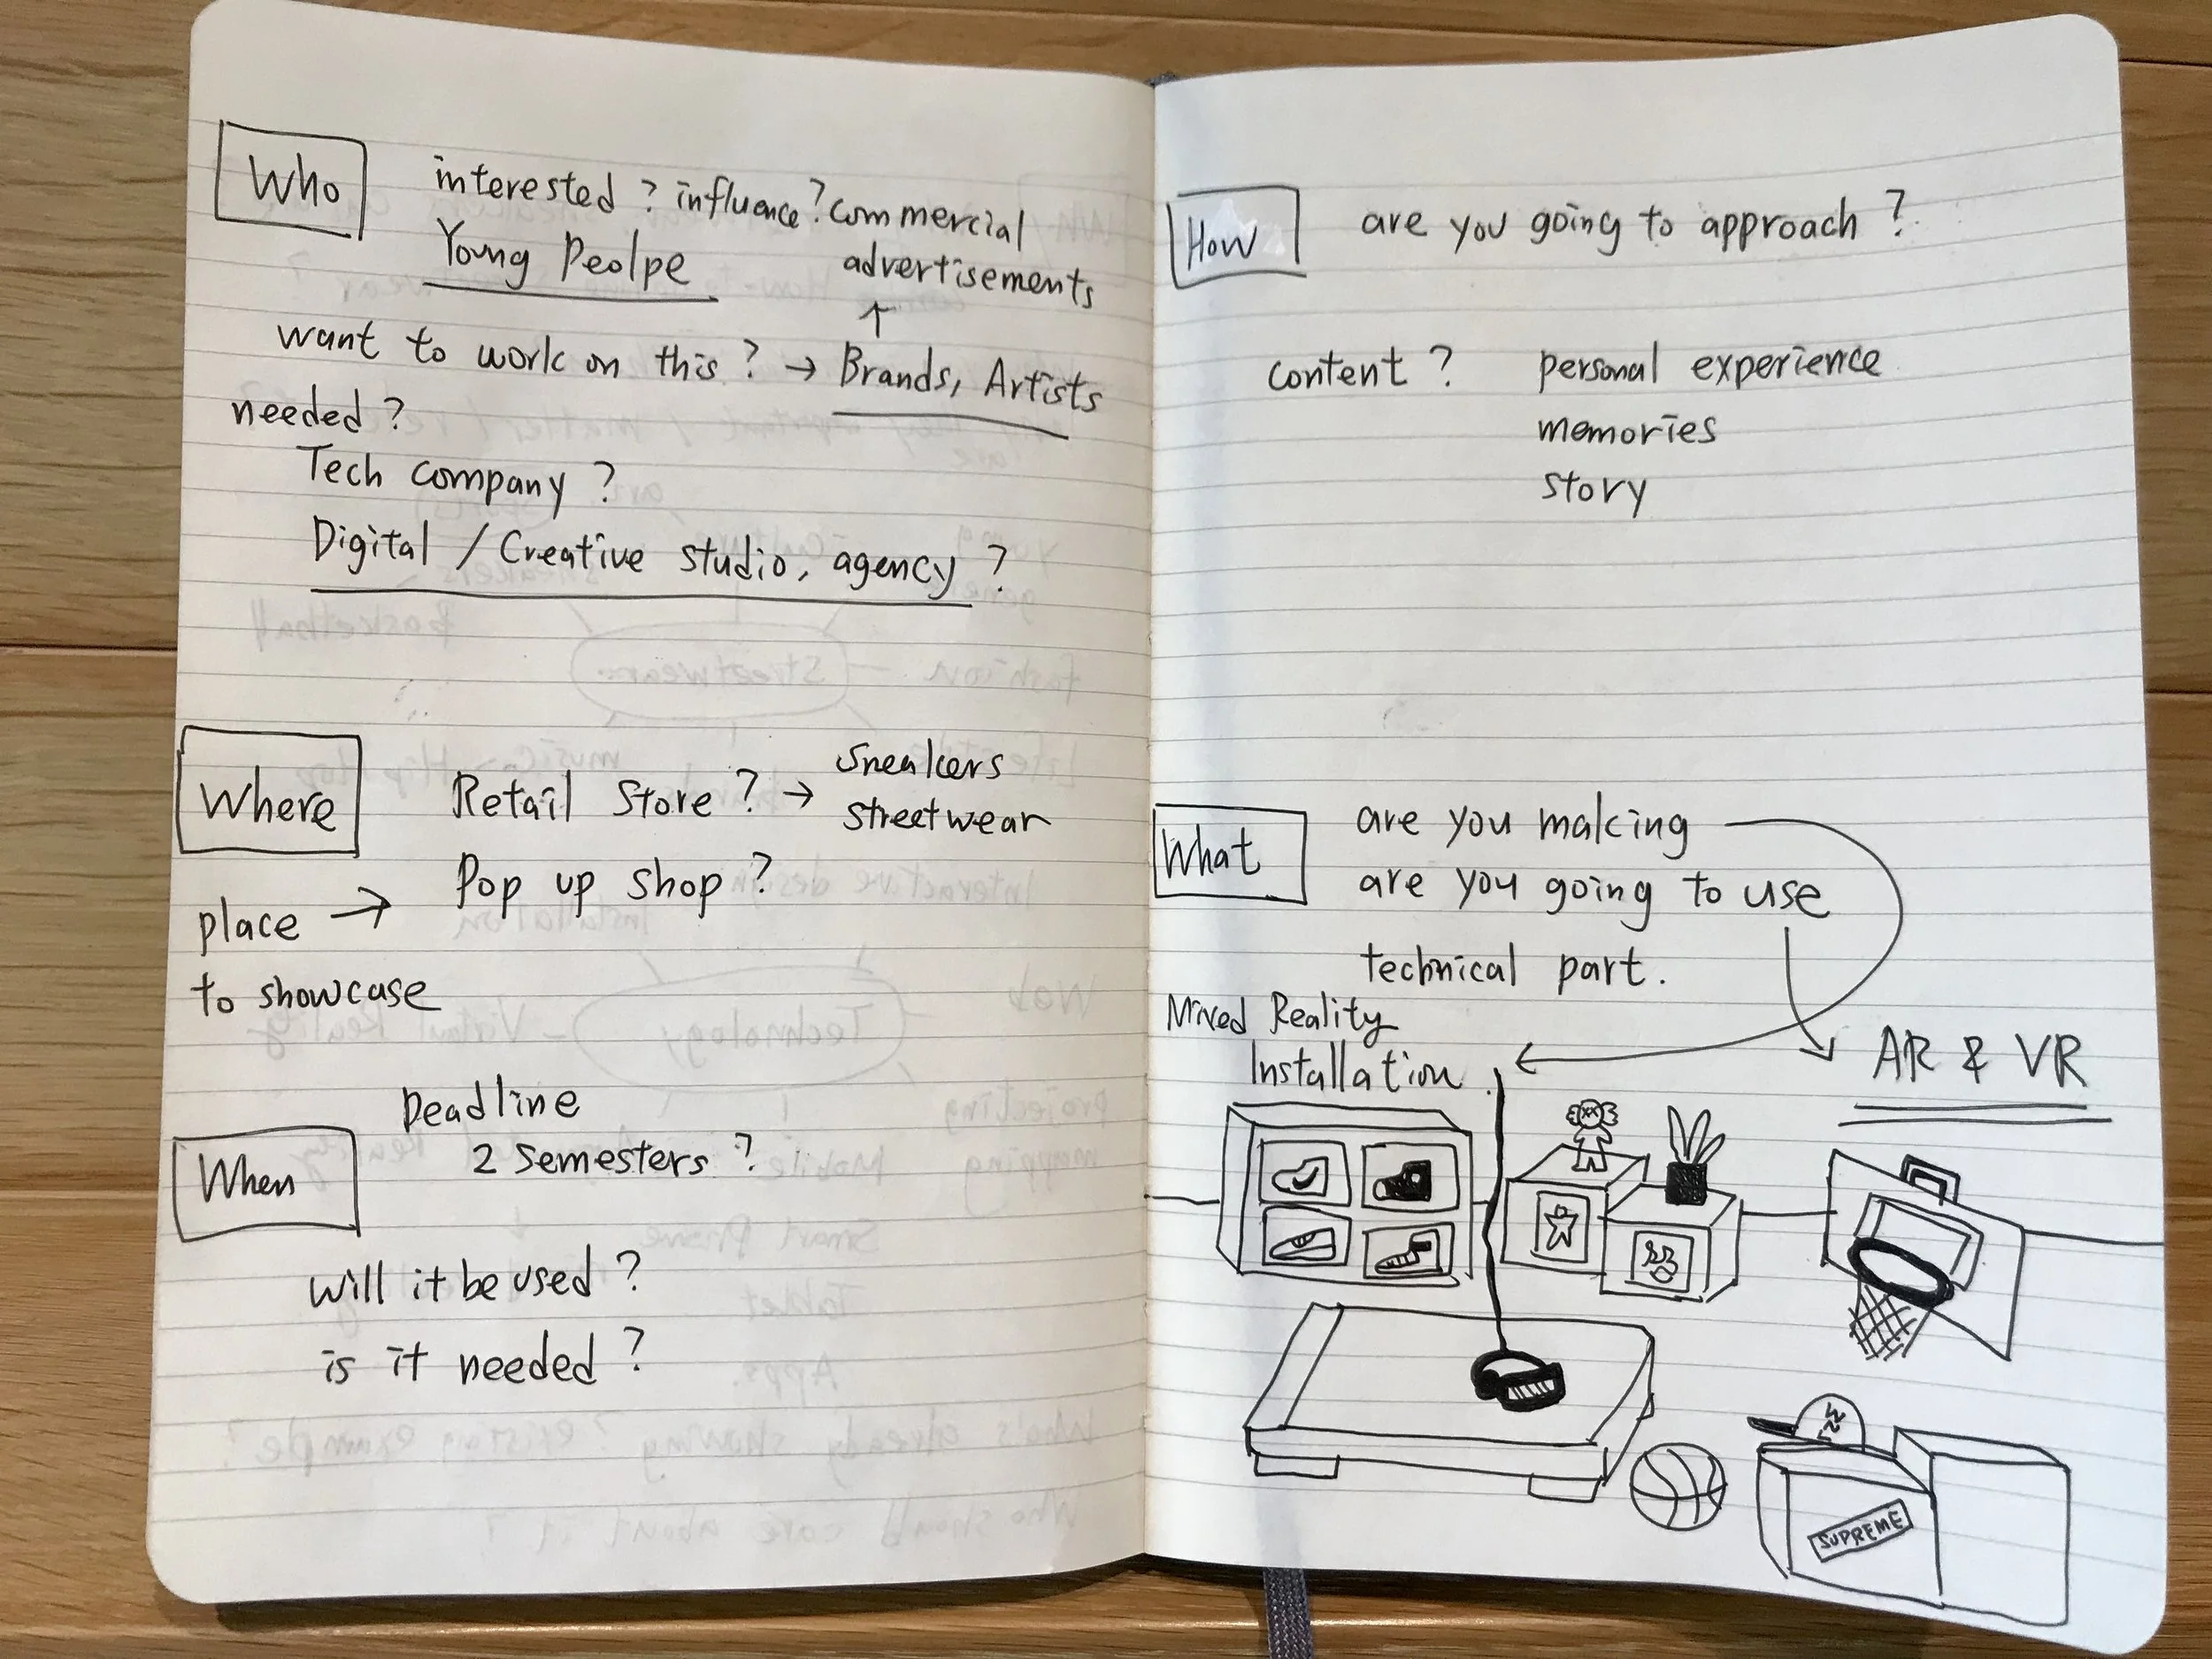 Who
interested ? influence? commercial
Young Peolpe advertisements
↑
want to work on this ? → Brands, Artists
needed ?
Tech company ?
Digital / Creative studio, agency ?
Where
Retail Store ? → Sneakers
streetwear
Pop up shop ?
place →
to showcase
When
Deadline
2 Semesters ?
will it be used ?
is it needed ?
How
are you going to approach ?
content ? personal experience
memories
story
What
are you making
are you going to use
technical part.
Mixed Reality
Installation
AR & VR
SUPREME